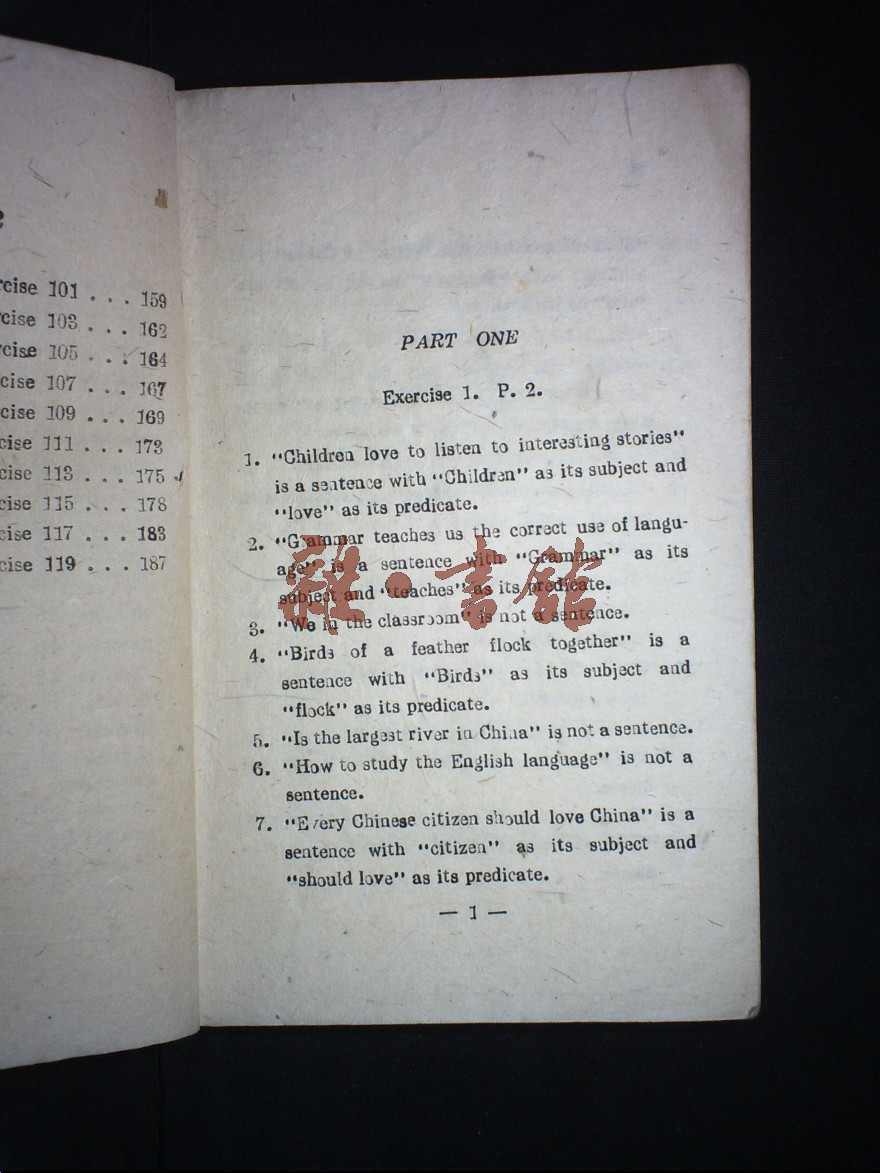 rcise 101 . . . 159
rcise 103 . . . 162
rcise 105 . . . 164
cise 107 . . . 167
cise 109 . . . 169
cise 111 . . . 173
cise 113 . . . 175
cise 115 . . . 178
cise 117 . . . 183
cise 119 . . . 187
PART ONE
Exercise 1. P. 2.
1. "Children love to listen to interesting stories"
is a sentence with "Children" as its subject and
"love" as its predicate.
2. "Grammar teaches us the correct use of langu-
age" is a sentence with "Grammar" as its
subject and "teaches" as its predicate.
3. "We in the classroom" is not a sentence.
4. "Birds of a feather flock together" is a
sentence with "Birds" as its subject and
"flock" as its predicate.
5. "Is the largest river in China" is not a sentence.
6. "How to study the English language" is not a
sentence.
7. "Every Chinese citizen should love China" is a
sentence with "citizen" as its subject and
"should love" as its predicate.
— 1 —